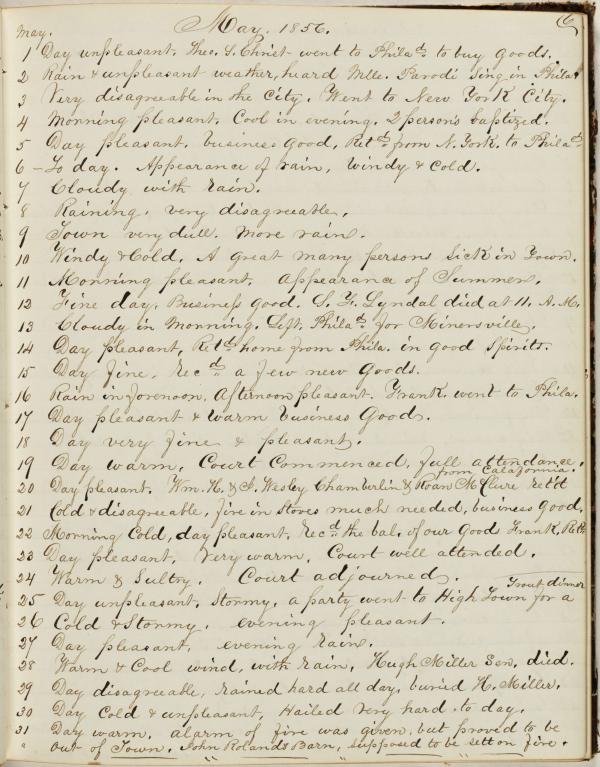 May. May. 1856. 6
1 Day unpleasant. Theo. S. Christ- went to Philad. to buy goods.
2 Rain & unpleasant weather, heard Mlle. Parodi Sing in Philad.
3 Very disagreeable in the City. Went to New York City.
4 Morning pleasant. Cool in evening. 2 persons baptized.
5 Day pleasant, business good, Retd. from N. York. to Philad.
6 - To day. Appearance of rain, Windy & Cold.
7 Cloudy with rain.
8 Raining. very disagreeable.
9 Town very dull. More rain.
10 Windy & Cold. A great many persons Sick in Town.
11 Morning pleasant. Appearance of Summer.
12 Fine day. Business good. Lyndal died at 11. A.M.
13 Cloudy in Morning. Left. Philad. for Minersville.
14 Day pleasant, Retd. home from Phila. in good Spirits.
15 Day fine. Recd. a few new goods.
16 Rain in forenoon, Afternoon pleasant. Frank. went to Phila.
17 Day pleasant & warm business Good.
18 Day very fine & pleasant.
19 Day warm. Court Commenced. full attendance.
from California.
20 Day pleasant. Wm. H. & J. Wesley Chamberlin & Roan McClure ret'd
21 Cold & disagreeable, fire in Stoves much needed, business good.
22 Morning Cold, day pleasant. Recd. the bal. of our Goods Frank, Retd.
23 Day pleasant, Very warm. Court well attended.
24 Warm & Sultry. Court adjourned.
Trout dinner
25 Day unpleasant, Stormy, a party went to High Town for a
26 Cold & Stormy. evening pleasant.
27 Day pleasant, evening Rain.
28 Warm & Cool wind, with rain, Hugh Miller Sen. died.
29 Day disagreeable, rained hard all day, buried H. Miller.
30 Day Cold & unpleasant, Hailed very hard to day.
31 Day warm. alarm of fire was given, but proved to be
" out of Town. John Rolands Barn, supposed to be sett on fire.